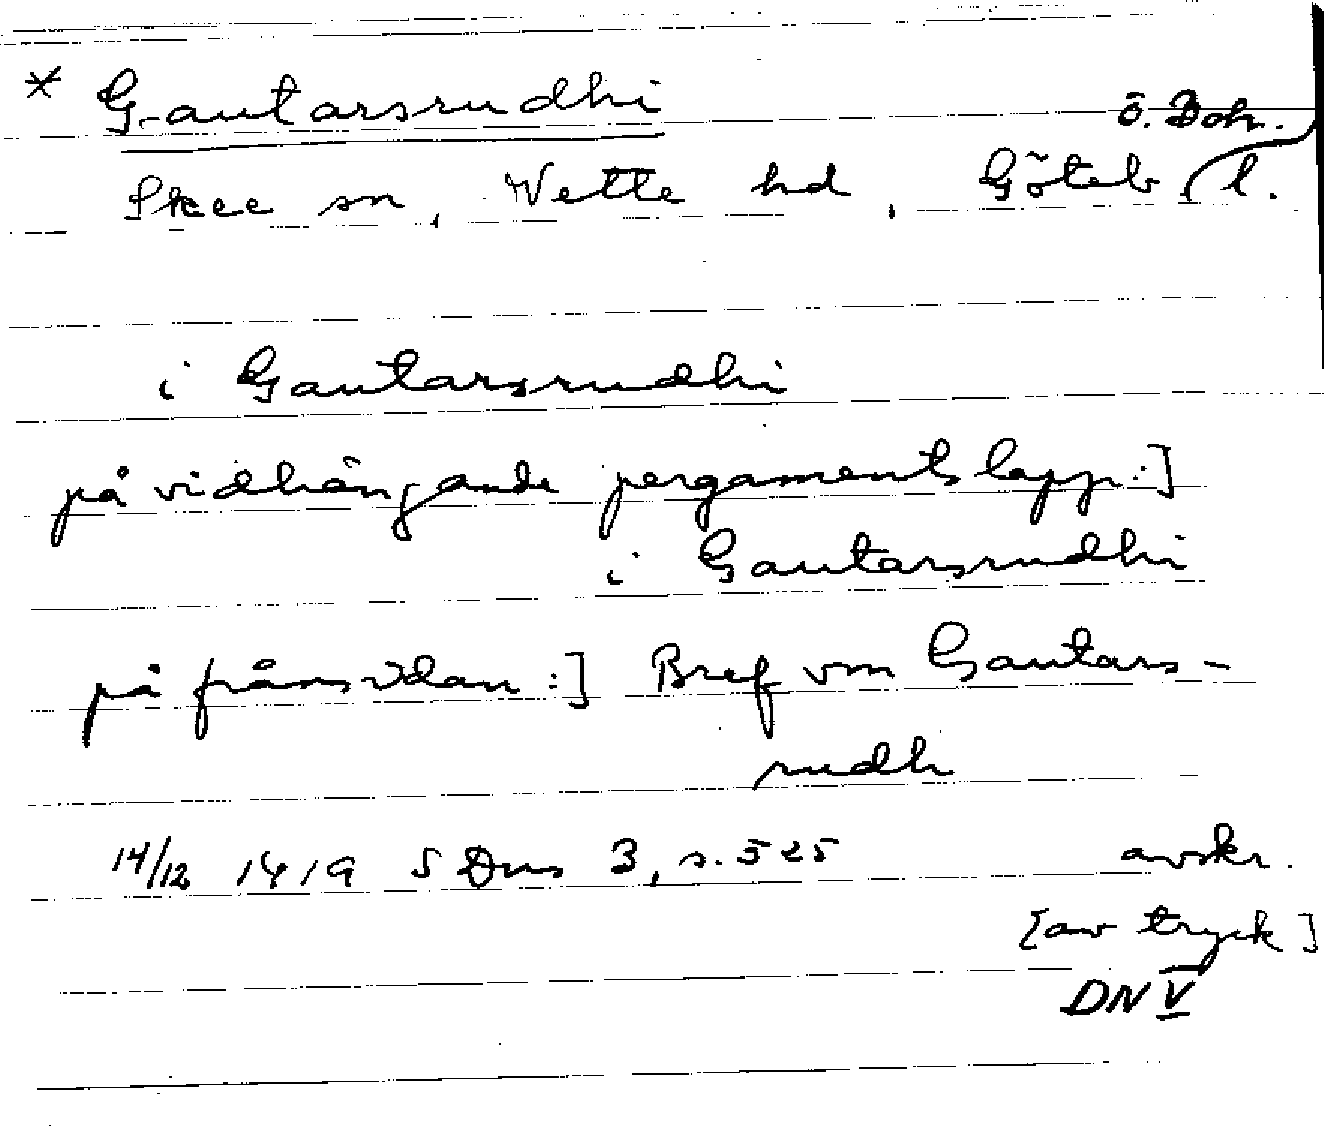 * Gautarsrudhi
ö. Boh.
Skee sn, Vette hd, Göteb l.
i Gautarsrudhi
på vidhängande pergamentslapp:]
i Gautarsrudhi
på frånsidan:] Bref vm Gautars-
rudh
14/12 1419 S Dns 3, s. 525 avskr.
[av tryck]
DN V